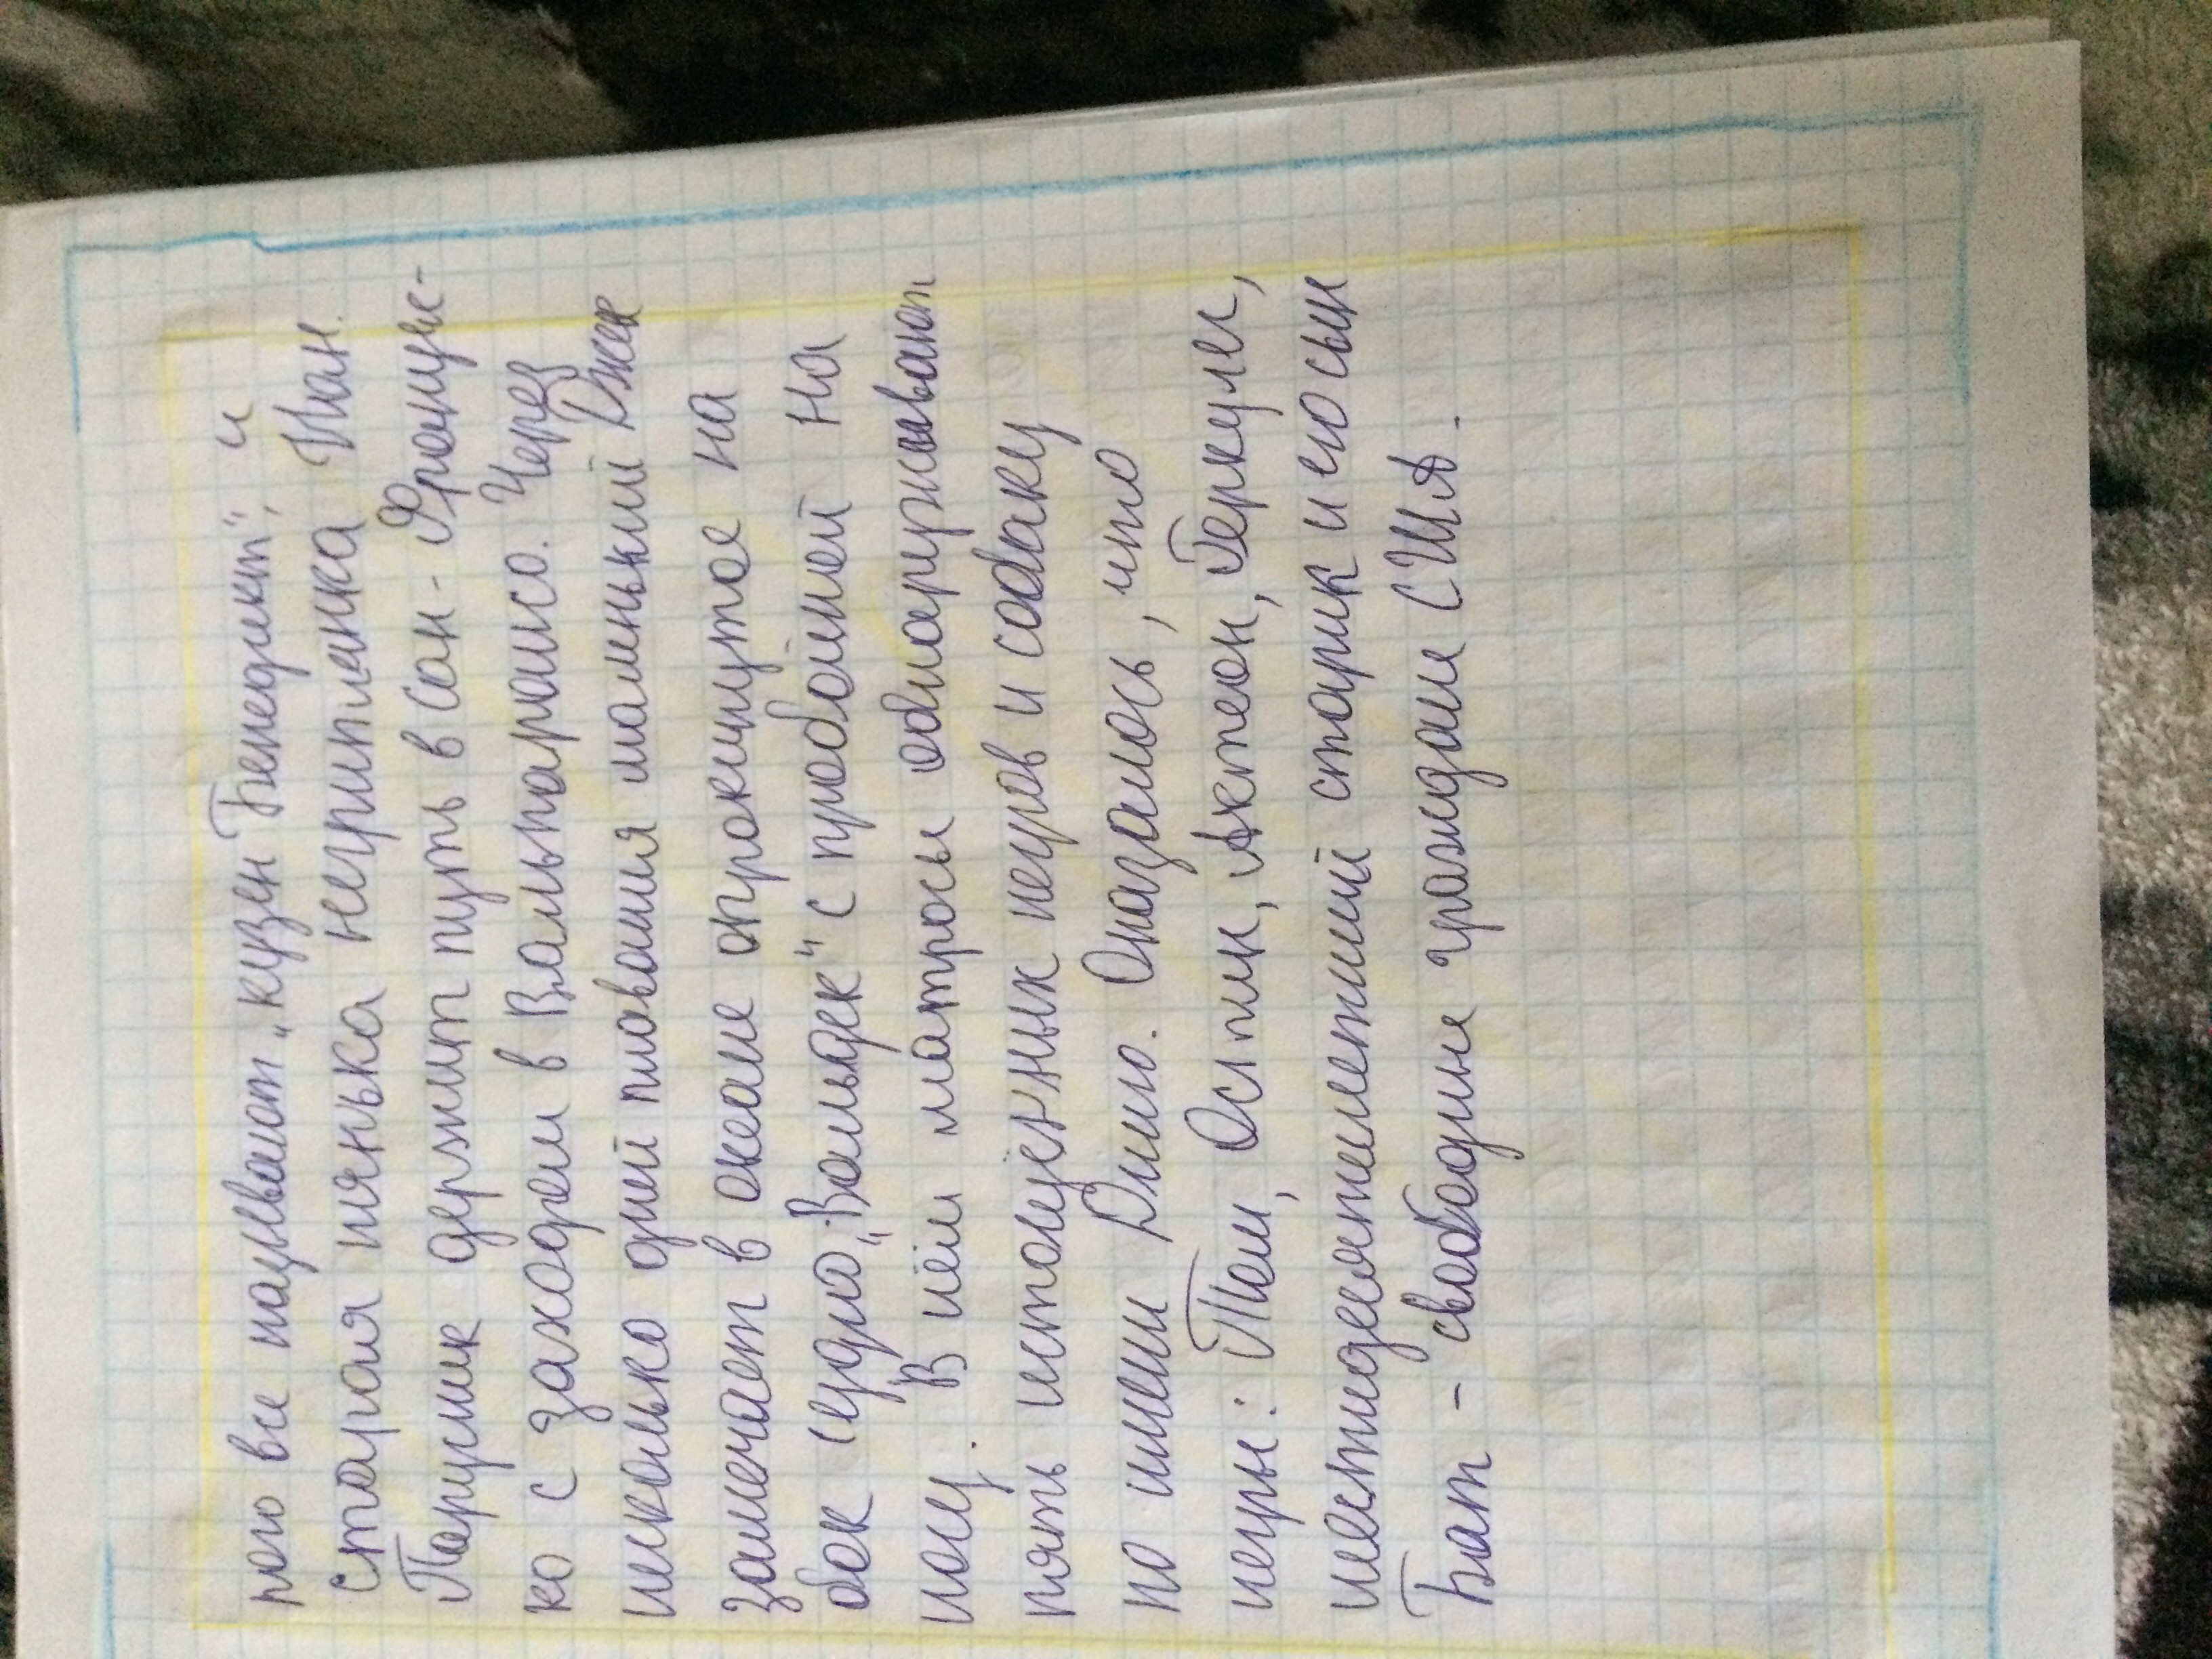 рого все называют „кузен Бенедикт“, и
старая нянька негритянка Нан.
Парусник держит путь в Сан-Францис-
ко с заходом в Вальпараисо. Через
несколько дней плавания маленький Джек
замечает в океане опрокинутое на
бок судно „Вальдек“ с пробоиной на
носу. В нём матросы обнаруживают
пять истощённых негров и собаку
по имени Динго. Оказалось, что
негры: Том, Остин, Актеон, Геркулес,
шестидесятилетний старик и его сын
Бат - свободные граждане США.